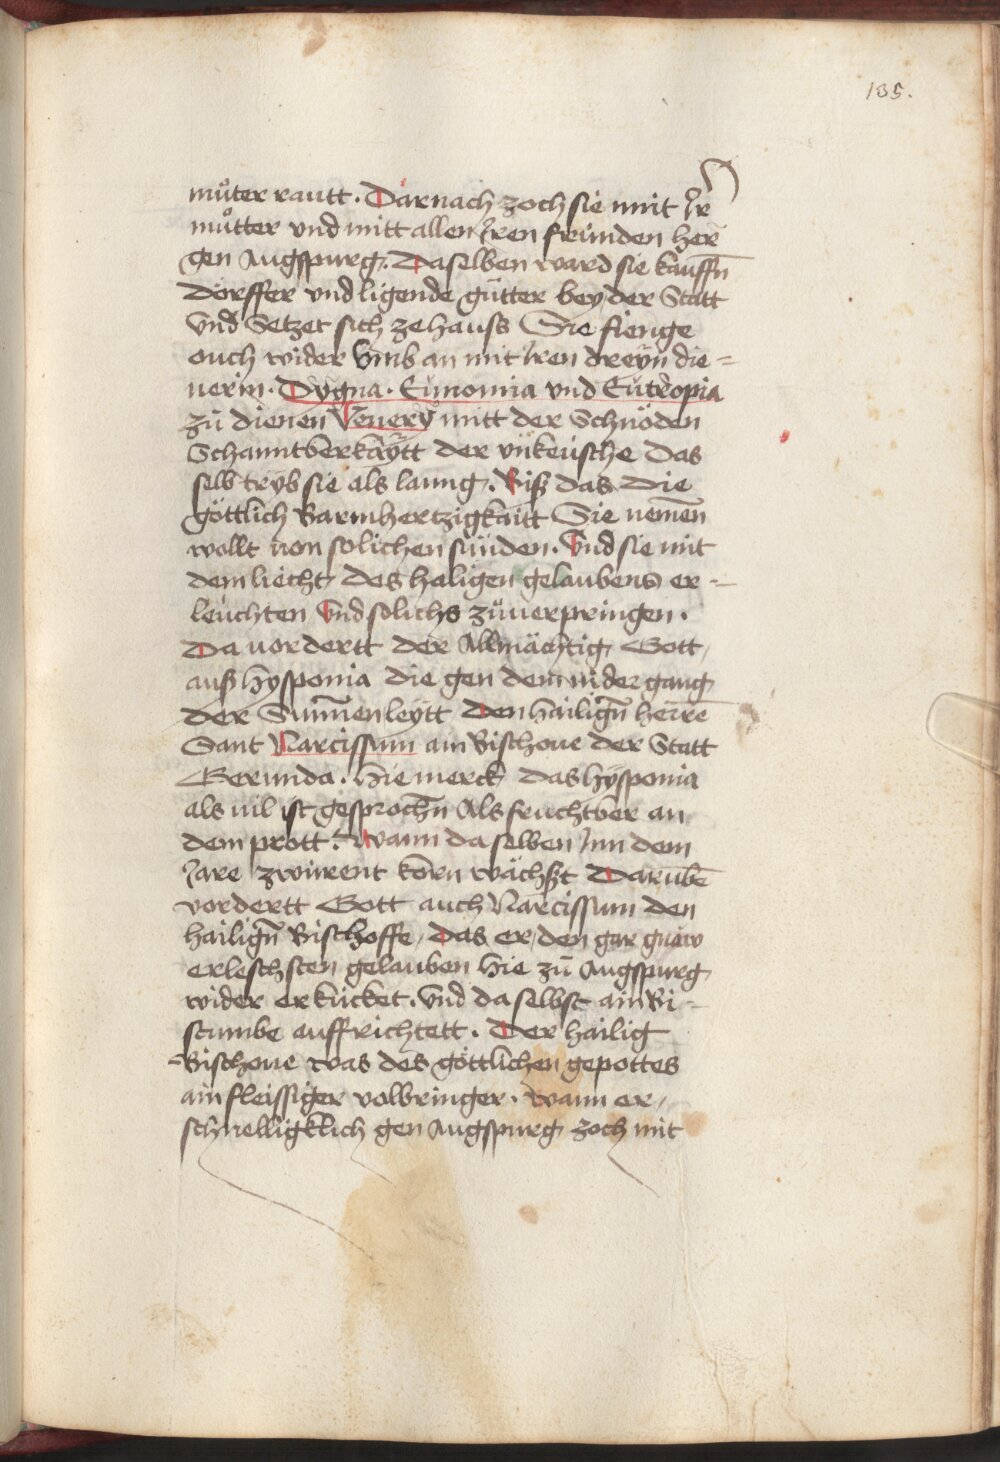 135.
můter rautt. Darnach zoch sie mit Jr
můtter vnd mitt allen Jren fründen her
gen Augspurg. Daselben ward sie kauffn̄
Dörffer vnd ligende gütter bey der Statt
Vnd Setzet sich zehauss Sie fienge
ouch wider Vmb an mit Jren dreÿn die=
nerin. Dygna. Eunomia vnd Eutropia
zů dienen Venerÿ mitt der Schnöden
Schanntberkäytt der vnkeüsche Das
selb tryb sie als lanng. Biß das die
göttlich Barmhertzigkaitt Sie nemen̄
wollt von solichen sünden. Vnd sie mit
dem liecht des haligen gelaubens er=
leüchten Vnd solichs zůuerpringen.
Da vordertt der Allmächtig Gott
auß hysponia die gen dem nider gang
der Sunnen leytt Den hailign̄ herrē
Sant Narcissum ain Bischoue der Statt
Gerunda. Hie merck das hÿsponia
als vil ist gesprochn̄ Als fruchtber an
dem prott. Wann da selben Jnn dem
Jare zwirent korn wächßt Darubē
vordertt Gott auch Narcissum den
hailign̄ Bischoffe, das er den gar
erleschsten gelauben hie zů Augspurg
wider erkücket. Vnd da selbst ain Bi=
stumbe auffrichtett. Der hailig
Bischoue was des göttlichen gepottes
ain fleissiger volbringer. Wann er
schnelligklich gen Augspurg zoch mit